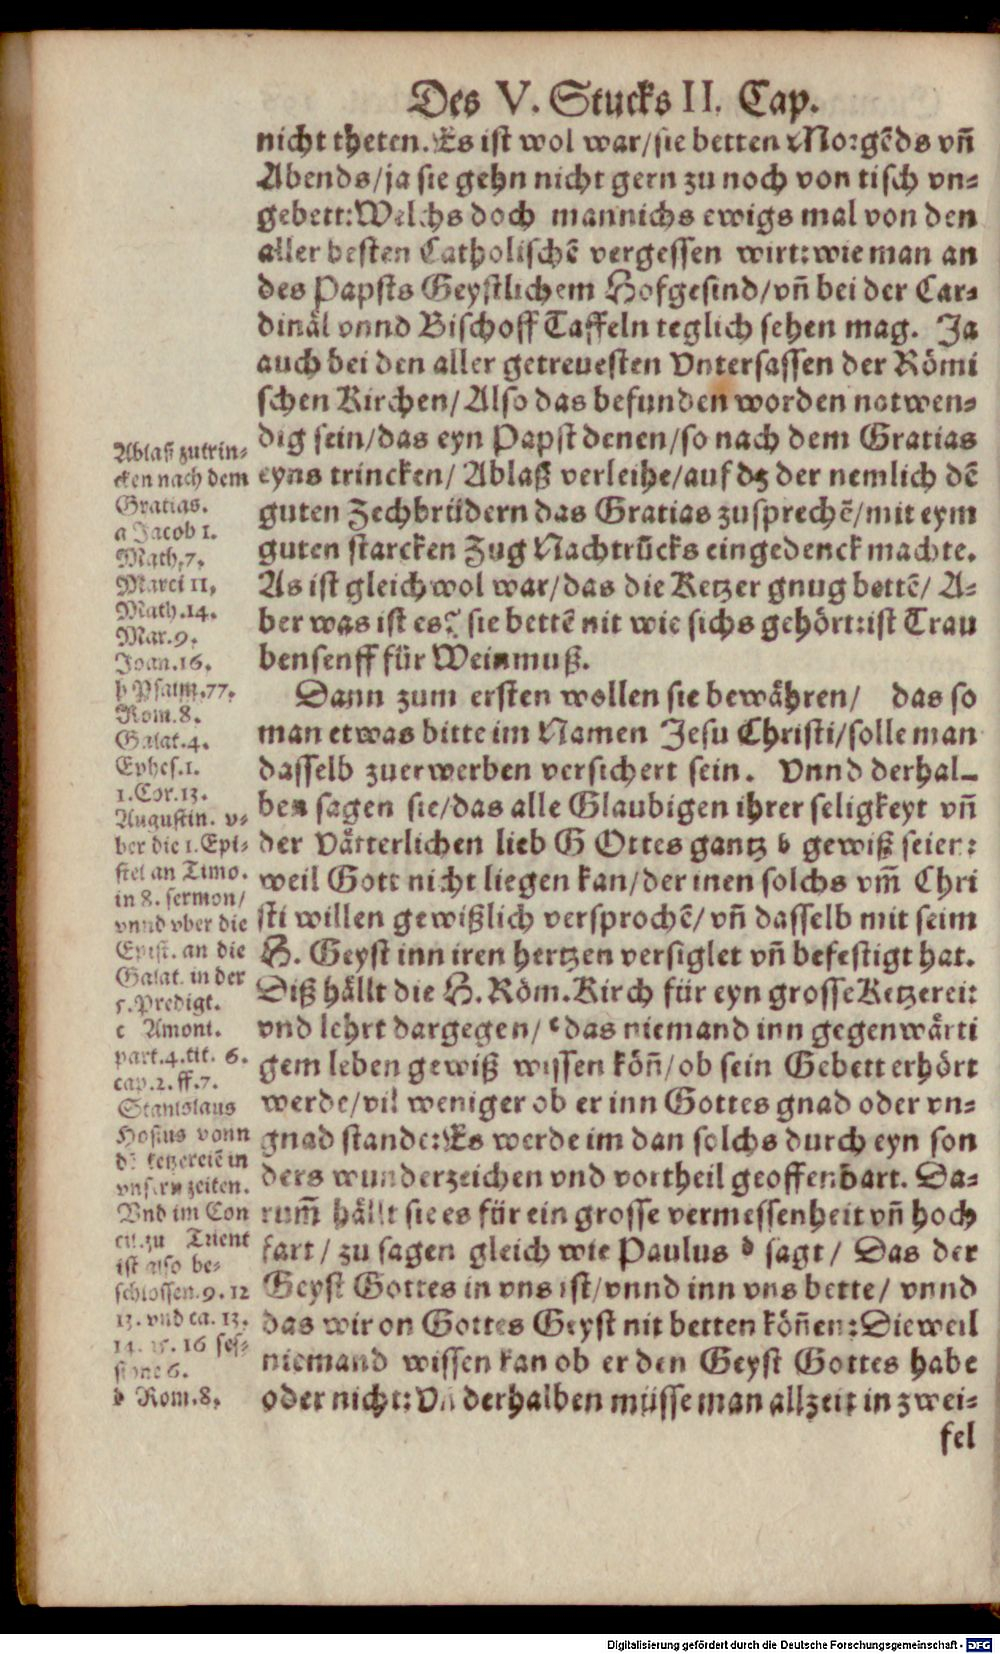 Des V. Stucks II. Cap.
nicht theten. Es ist wol war/sie betten Morgẽds vñ
Abends/ja sie gehn nicht gern zu noch von tisch vn-
gebett: Welchs doch mannichs ewigs mal von den
aller besten Catholischẽ vergessen wirt: wie man an
des Papsts Geystlichem Hofgesind/vñ bei der Car-
dinäl vnnd Bischoff Taffeln teglich sehen mag. Ja
auch bei den aller getreuesten Vntersassen der Römi
schen Kirchen/ Also das befunden worden notwen-
dig sein/das eyn Papst denen/so nach dem Gratias
eyns trincken/ Ablaß verleihe/auf dz der nemlich dẽ
guten Zechbrüdern das Gratias zusprechẽ/mit eym
guten starcken Zug Nachtrũcks eingedenck machte.
As ist gleichwol war/das die Ketzer gnug bettẽ/ A-
ber was ist es? sie bettẽ nit wie sichs gehört: ist Trau
bensenff für Weinmuß.
Dann zum ersten wollen sie bewähren/ das so
man etwas bitte im Namen Jesu Christi/solle man
dasselb zuerwerben versichert sein. Vnnd derhal-
ben sagen sie/das alle Glaubigen ihrer seligkeyt vñ
der Vätterlichen lieb GOttes gantz b gewiß seien:
weil Gott nicht liegen kan/der inen solchs vm̃ Chri
sti willen gewißlich versprochẽ/vñ dasselb mit seim
H. Geyst inn iren hertzen versiglet vñ befestigt hat.
Diß hällt die H. Röm. Kirch für eyn grosse Ketzerei:
vnd lehrt dargegen/ c das niemand inn gegenwärti
gem leben gewiß wissen köñ/ob sein Gebett erhört
werde/vil weniger ob er inn Gottes gnad oder vn-
gnad stande: Es werde im dan solchs durch eyn son
ders wunderzeichen vnd vortheil geoffenbart. Da-
rum̃ hällt sie es für ein grosse vermessenheit vñ hoch
fart/ zu sagen gleich wie Paulus d sagt/ Das der
Geyst Gottes in vns ist/vnnd inn vns bette/ vnnd
das wir on Gottes Geyst nit betten köñen: Dieweil
niemand wissen kan ob er den Geyst Gottes habe
oder nicht: Vñ derhalben müsse man allzeit in zwei-
fel
Ablaß zutrin-
cken nach dem
Gratias.
a Jacob 1.
Math.7.
Marci 11.
Math.14.
Mar.9.
Joan.16.
b Psalm.77.
Rom.8.
Galat.4.
Ephes.1.
1.Cor.13.
Augustin. v-
ber die 1.Epi-
stel an Timo.
in 8. sermon/
vnnd vber die
Epist. an die
Galat. in der
5.Predigt.
c Amont.
part.4.tit. 6.
cap.2.ff.7.
Stanislaus
Hosius vonn
dẽ ketzereiẽ in
vnsern zeiten.
Vnd im Con
cil.zu Trient
ist also be-
schlossen.9.12
13.vnd ca.13.
14.15.16 ses-
sione 6.
d Rom.8.
Digitalisierung gefördert durch die Deutsche Forschungsgemeinschaft - DFG